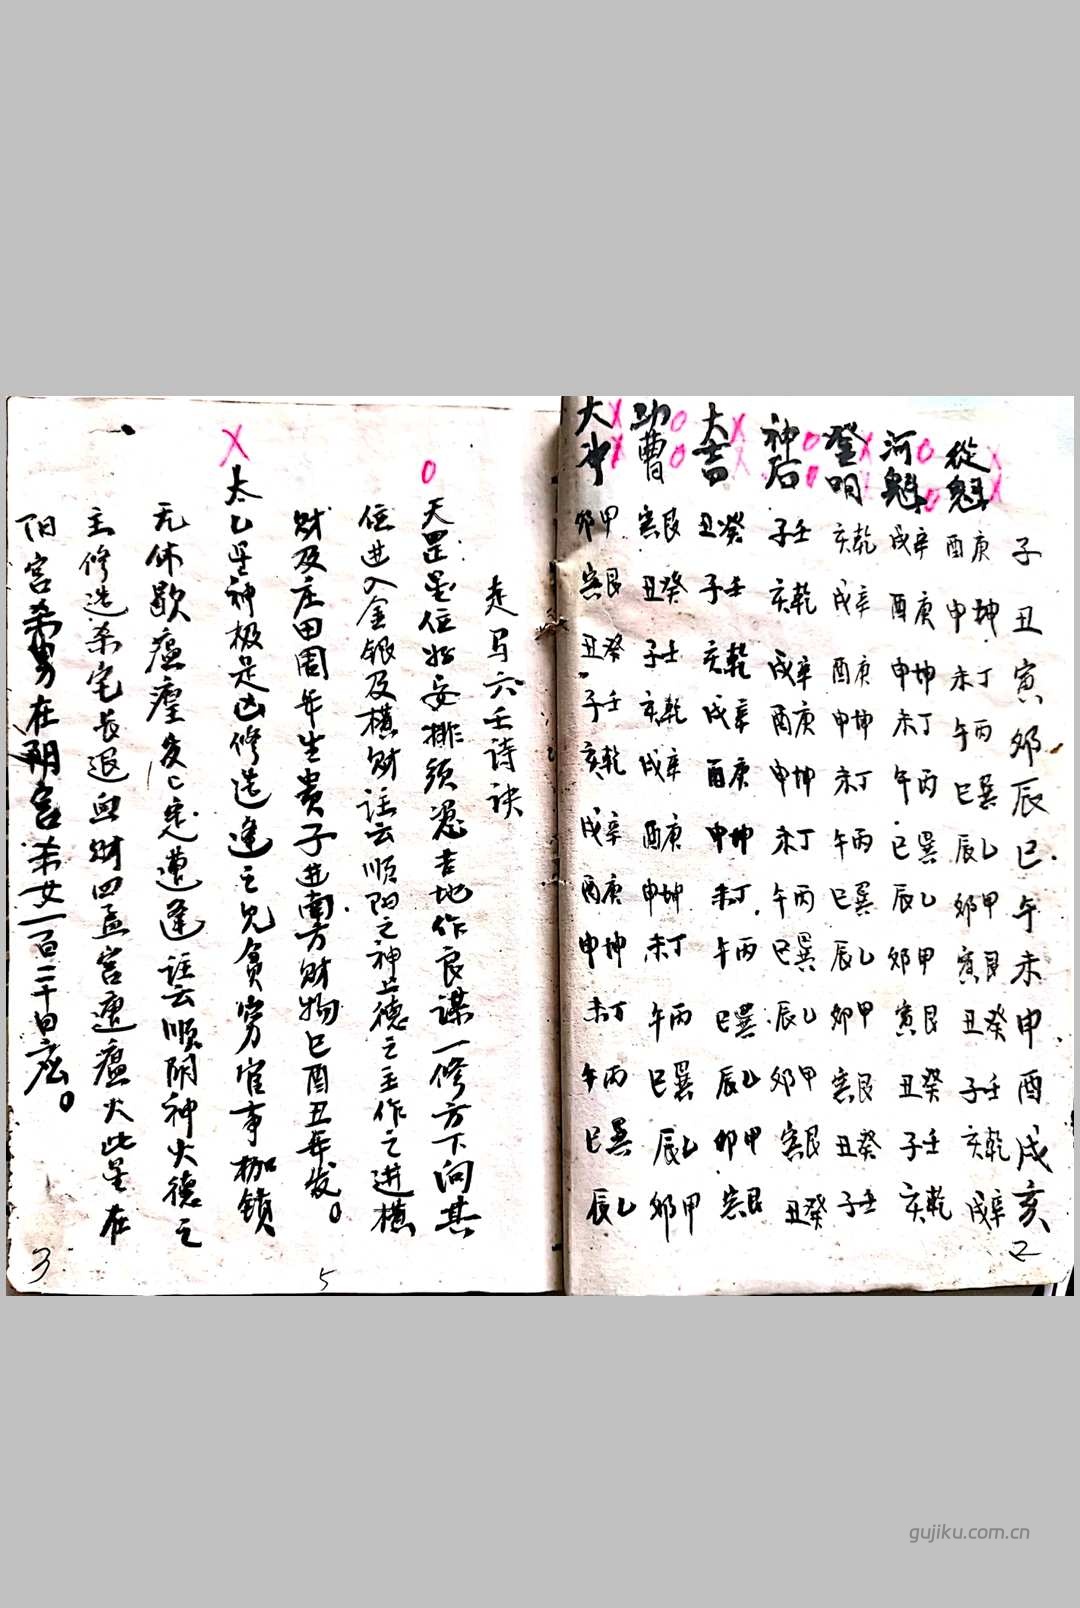 子丑寅卯辰巳午未申酉戌亥
從魁 酉庚 申坤 未丁 午丙 巳巽 辰乙 卯甲 寅艮 丑癸 子壬 亥乾 戌辛
河魁 戌辛 酉庚 申坤 未丁 午丙 巳巽 辰乙 卯甲 寅艮 丑癸 子壬 亥乾
登明 亥乾 戌辛 酉庚 申坤 未丁 午丙 巳巽 辰乙 卯甲 寅艮 丑癸 子壬
神后 子壬 亥乾 戌辛 酉庚 申坤 未丁 午丙 巳巽 辰乙 卯甲 寅艮 丑癸
大吉 丑癸 子壬 亥乾 戌辛 酉庚 申坤 未丁 午丙 巳巽 辰乙 卯甲 寅艮
功曹 寅艮 丑癸 子壬 亥乾 戌辛 酉庚 申坤 未丁 午丙 巳巽 辰乙 卯甲
大冲 卯甲 寅艮 丑癸 子壬 亥乾 戌辛 酉庚 申坤 未丁 午丙 巳巽 辰乙
2
走马六壬诗诀
天罡星位好安排须觅吉地作良谋一修方下向其
位进入金银及横财註云顺阳之神土德之主作之进横
财及庄田周年生贵子进南方财物巳酉丑年发。
太乙星神极是凶修造逢之见贪穷官事枷锁
无休歇瘟瘴定遭逢註云顺阴神火德之
主修造杀宅长退血财四孟宫遭瘟火此星在
阳宫杀男在阴宫杀女一百二十日应。
3
5
gujiku.com.cn